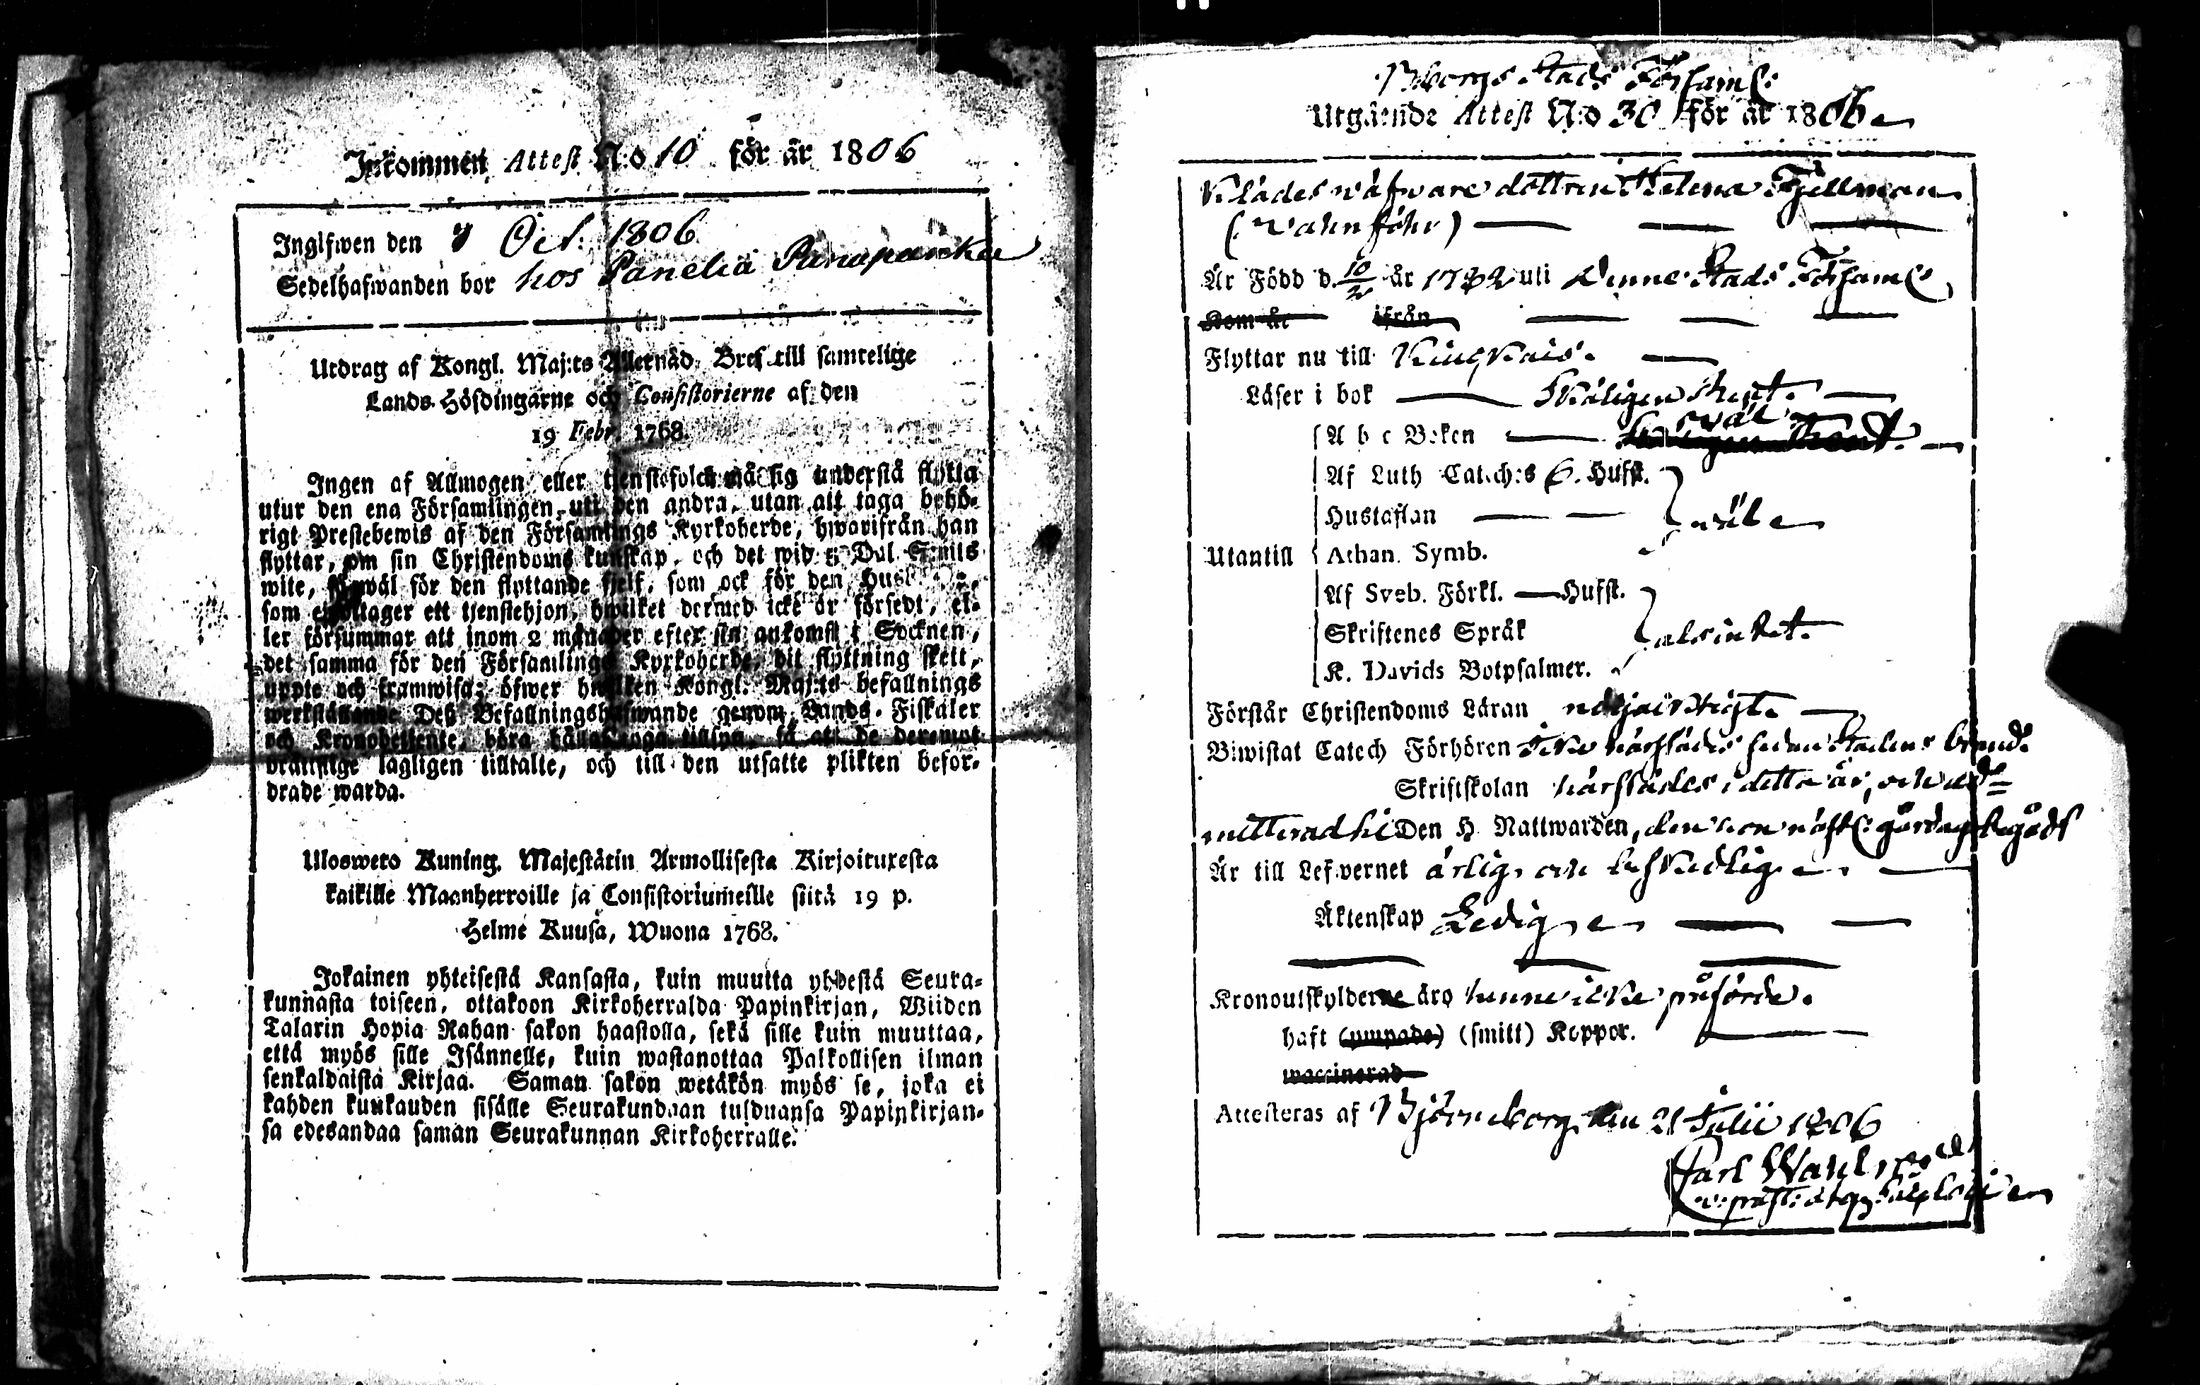 Inkommen Attest N:o 10 för år 1806
Ingifwen den 7 Oct. 1806
Sedelhafwanden bor hos Panelia
Utdrag af Kongl. Maj:ts Allernåd. Bref till samtelige
Lands-Höfdingarne och Consistorierne af den
19 Febr. 1768.
Ingen af Allmogen eller tjenstefolck må sig understå flytta
utur den ena Församlingen uti den andra, utan att taga behö-
rigt Prestebewis af den Församlings Kyrkoherde, hwarifrån han
flyttar, om sin Christendoms kunskap, och det wid 5 Dal. S:mts
wite, så wäl för den flyttande sjelf, som ock för den
som emottager ett tjenstehjon, hwilket dermed icke är försedt, el-
ler försummar att inom 2 månader efter sin ankomst i Socknen,
det samma för den Församlings Kyrkoherde, dit flyttning skett,
uppte och framwisa; öfwer hwilken Kongl. Maj:ts befallnings
werkställande Deß Befallningshafwande genom Lands-Fiskaler
och Kronobetjente, böra hålla noga tillsyn, så att de deremot
brottslige lagligen tilltalte, och till den utsatte plikten befor-
drade warda.
Ulosweto Kuning. Majestätin Armollisesta Kirjoituxesta
kaikille Maanherroille ja Consistoriumeille siitä 19 p.
Helme Kuusa, Wuona 1768.
Jokainen yhteisestä Kansasta, kuin muutta yhdestä Seura-
kunnasta toiseen, ottakoon Kirkoherralda Papinkirjan, Wiiden
Talarin Hopia Rahan sakon haastolla, sekä sille kuin muuttaa,
että myös sille Isännelle, kuin wastanottaa Palkollisen ilman
senkaldaista Kirjaa. Saman sakon wetäkön myös se, joka ei
kahden kuukauden sisälle Seurakundaan tulduansa Papinkirjan-
sa edesandaa saman Seurakunnan Kirkoherralle.
Bborgs Stads Förssaml:
Utgående Attest N:o 30 för år 1806
Klädeswäfware dottren Helena Fjellman
(Wahnföhr)
Är Född d. 10/2 år 1782 uti denne Stads Församl.
Kom år ifrån
Flyttar nu till Kiukais.
Läser i bok Skäligen Rent.
A b c Boken wäl
Af Luth Catech:s 6. Hufst.
Hustaflan wäl
Utantill Athan. Symb.
Af Sveb. Förkl. Hufst.
Skriftenes Språk alsintet.
K. Davids Botpsalmer.
Förstår Christendoms Läran nödjaktigt.
Biwistat Catech Förhören icke härstädes sedan Stadens brand.
Skriftskolan härstädes i detta år, och ad-
mitterad till Den H. Nattwarden, den hon näst:
Är till Lefwernet ärlig och beskedlig
Äktenskap Ledig
Kronoutskylderne äro henne icke påförde.
haft (ympade) (smitt) Koppor.
waccinerad
Attesteras af Björneborg den 21 Julii 1806
Carl